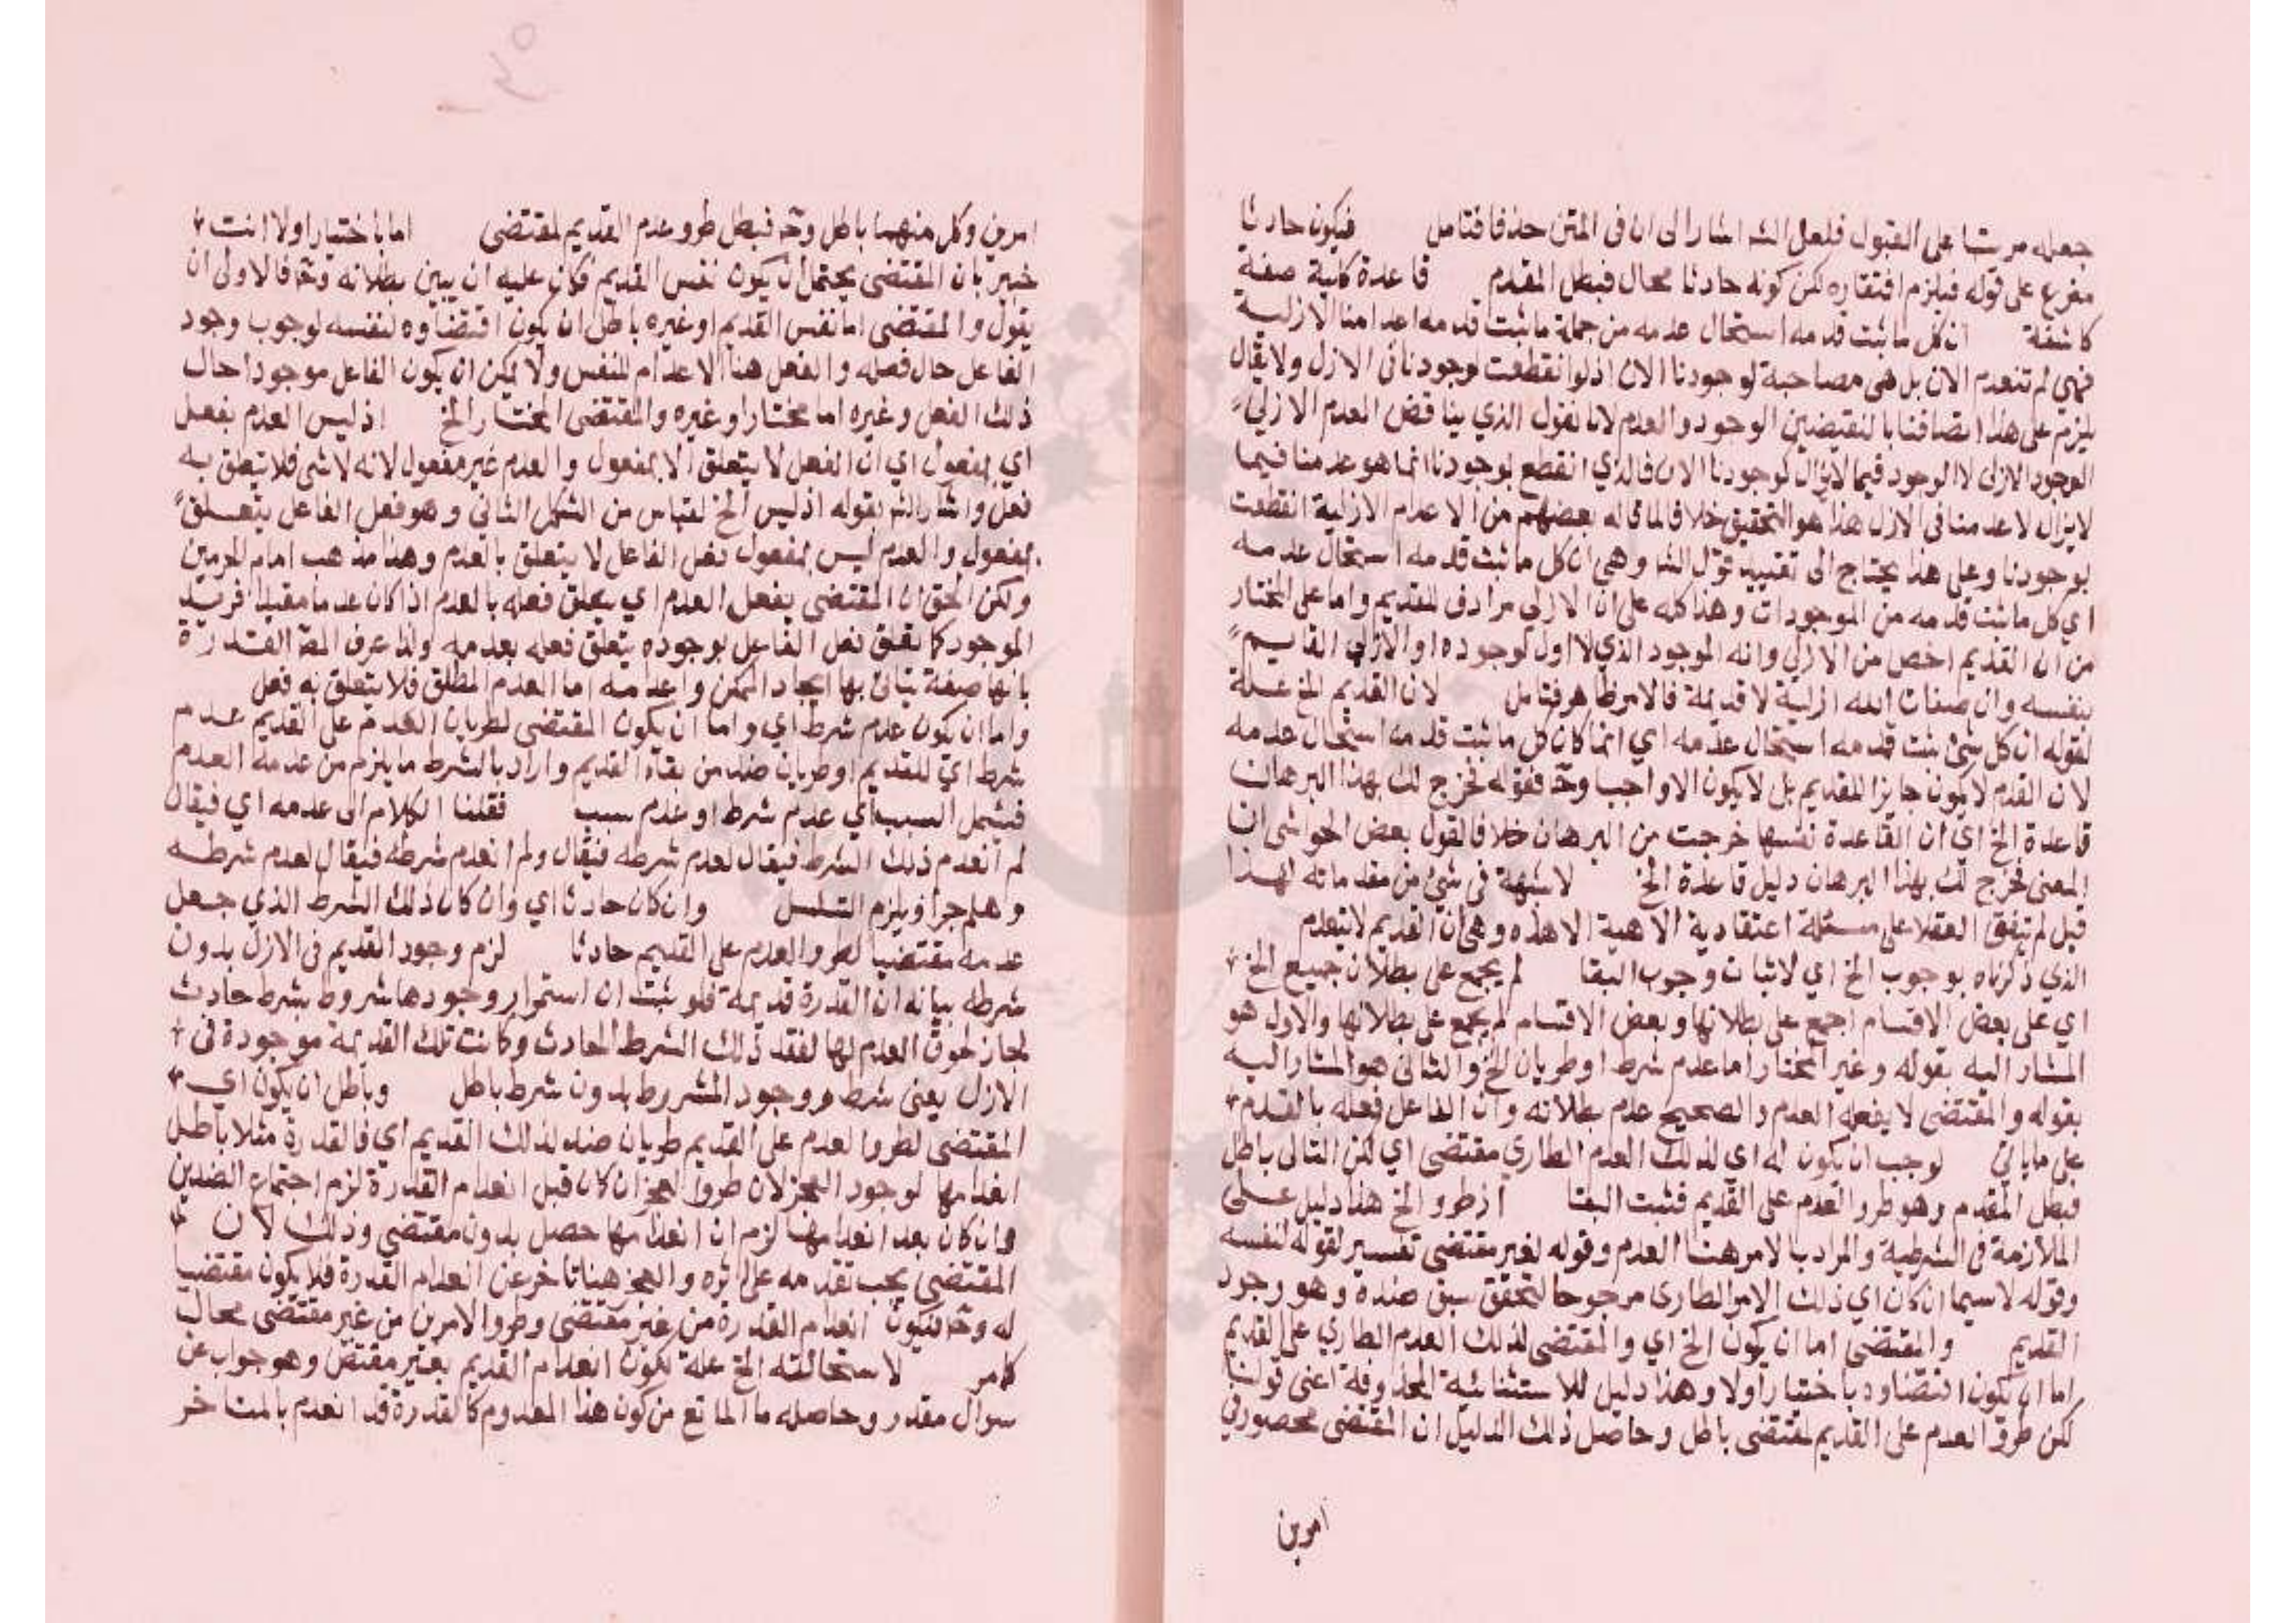 جعله مرتبا على القبول فلعل الشه اشار الى ان في المتن حذفا فتامل فيكون حادثا
مفرع على قوله فيلزم افتقاره لكن كونه حادثا محال فبطل المقدم قاعدة كلية صفة
كاشفة ان كل ما ثبت قدمه استحال عدمه من جملة ما ثبت قدمه اعدامنا الازلية
فهي لم تنعدم الان بل هي مصاحبة لوجودنا الان اذ لو انقطعت لوجودنا في الازل ولا يقال
يلزم على هذا اتصافنا بالنقيضين الوجود والعدم لانا نقول الذي يناقض العدم الازلي
الوجود الازلي لا الوجود فيما لا يزال لوجودنا الان فالذي انقطع بوجودنا انما هو عدمنا فيما
لا يزال لا عدمنا في الازل هذا هو التحقيق خلافا لما قاله بعضهم من ان الاعدام الازلية انقطعت
بوجودنا وعلى هذا يحتاج الى تقييد قول الشه وهي ان كل ما ثبت قدمه استحال عدمه
اي كل ما ثبت قدمه من الموجودات وهذا كله على ان الازلي مرادف للقديم واما على المختار
من ان القديم اخص من الازلي وانه الموجود الذي لا اول لوجوده او الازلي القايم
بنفسه وان صفات الله ازلية لا قديمة فالامر ظاهر فتامل لان القديم الخ علة
لقوله ان كل شئ ثبت قدمه استحال عدمه اي انما كان كل ما ثبت قدمه استحال عدمه
لان القدم لا يكون جايزا للقديم بل لا يكون الا واجبا وح فقوله فخرج لك بهذا البرهان
قاعدة الخ اي ان القاعدة نفسها خرجت من البرهان خلافا لقول بعض الحواشي ان
المعنى فخرج لك بهذا البرهان دليل قاعدة الخ لا شبهة في شئ من مقدماته لهذا
قيل لم يتفق العقلا على مسئلة اعتقادية الاهية الا هذه وهي ان القديم لا ينعدم
الذي ذكرناه بوجوب الخ اي لاثبات وجوب البقا لم يجمع على بطلان جميع الخ
اي على بعض الاقسام اجمع على بطلانها وبعض الاقسام لم يجمع على بطلانها والاول هو
المشار اليه بقوله وغير المختار اما عدم شرط او طريان الخ والثاني هو المشار اليه
بقوله والمقتضي لا يفعل العدم والصحيح عدم بطلانه وان الفاعل فعله بالعدم
على ما ياتي لوجب ان يكون له اي لذلك العدم الطاري مقتضي اي لكن التالي باطل
فبطل المقدم وهو طرو العدم على القديم فثبت البقا اذ طرو الخ هذا دليل على
الملازمة في الشرطية والمراد بالامر هنا العدم وقوله لغير مقتضي تفسير لقوله لنفسه
وقوله لا سيما ان كان اي ذلك الامر الطاري مرجوحا لتحقق سبق ضده وهو وجود
القديم والمقتضي اما ان يكون الخ اي والمقتضي لذلك العدم الطاري على القديم
اما ان يكون اقتضاوه باختيار او لا وهذا دليل للاستثنائية المحذوفة اعني قولنا
لكن طرو العدم على القديم لمقتضي باطل وحاصل ذلك الدليل ان المقتضي محصور في
امرين
امرين وكل منهما باطل وح فبطل طرو عدم القديم لمقتضي اما باختيار او لا انت
خبير بان المقتضي يحتمل ان يكون نفس القديم فكان عليه ان يبين بطلانه وح فالاولى ان
يقول والمقتضي اما نفس القديم او غيره باطل ان يكون اقتضاوه لنفسه لوجوب وجود
الفاعل حال فعله والفعل هنا الاعدام للنفس ولا يمكن ان يكون الفاعل موجودا حال
ذلك الفعل وغيره اما مختارا وغيره والمقتضي المختار الخ اذ ليس العدم بفعل
اي بمفعول اي ان الفعل لا يتعلق الا بمفعول والعدم غير مفعول لانه لا شئ فلا يتعلق به
فعل واشار الشه بقوله اذ ليس الخ لقياس من الشكل الثاني وهو فعل الفاعل يتعلق
بمفعول والعدم ليس بمفعول فعل الفاعل لا يتعلق بالعدم وهذا مذهب امام الحرمين
ولكن الحق ان المقتضي يفعل العدم اي يتعلق فعله بالعدم اذا كان عدما مقيدا فريد
الموجود كما تعلق فعل الفاعل بوجوده يتعلق فعله بعدمه ولذا عرف المص القدرة
بانها صفة يتاتى بها ايجاد الممكن واعدامه اما العدم المطلق فلا يتعلق به فعل
واما ان يكون عدم شرط اي واما ان يكون المقتضي لطريان العدم على القديم عدم
شرط اي للقديم او طريان ضد من بقاء القديم واراد بالشرط ما يلزم من عدمه العدم
فيشمل السبب اي عدم شرط او عدم سبب فقلنا الكلام الى عدمه اي فيقال
لم انعدم ذلك الشرط فيقال لعدم شرطه فيقال ولم انعدم شرطه فيقال لعدم شرطه
وهلم جرا ويلزم التسلسل وان كان حادثا اي وان كان ذلك الشرط الذي جعل
عدمه مقتضيا لطرو العدم على القديم حادثا لزم وجود القديم في الازل بدون
شرطه بيانه ان القدرة قديمة فلو ثبت ان استمرار وجودها مشروط بشرط حادث
لجاز لحوق العدم لها لفقد ذلك الشرط الحادث وكانت تلك القديمة موجودة في
الازل بغير شرط ووجود المشروط بدون شرط باطل وباطل ان يكون اي
المقتضي لطرو العدم على القديم طريان ضده لذلك القديم اي فالقدرة مثلا باطل
انعدامها لوجود العجز لان طرو العجز ان كان قبل انعدام القدرة لزم اجتماع الضدين
وان كان بعد انعدامها لزم ان انعدامها حصل بدون مقتضي وذلك لان
المقتضي يجب تقدمه على اثره والعجز هنا تاخر عن انعدام القدرة فلا يكون مقتضيا
له وح فيكون انعدام القدرة من غير مقتضي وطرو الامرين من غير مقتضي محال
كما مر لاستحالته الخ علة لكون انعدام القديم بغير مقتض وهو جواب عن
سوال مقدر وحاصله ما المانع من كون هذا المعدوم كالقدرة قد انعدم بالمتاخر